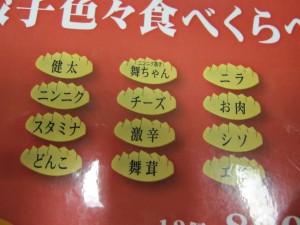 餃子色々食べくらべ
健太
ニンニク
スタミナ
どんこ
ニンニク抜き
舞ちゃん
チーズ
激辛
舞茸
ニラ
お肉
シソ